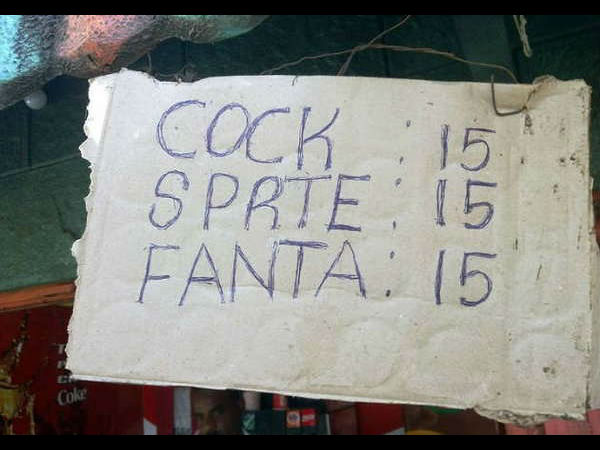 COCK : 15
SPRTE : 15
FANTA : 15
Coke